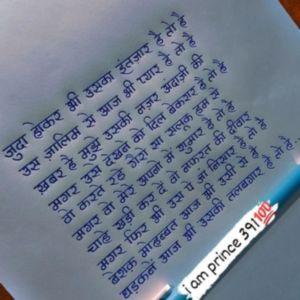 जुदा होकर भी उसका इंतज़ार है तो है
उस ज़ालिम से आज भी प्यार है तो है
ख़बर है मुझे उसकी नज़र अंदाज़ी की
मगर उसे देखने को दिल बेकरार है तो है
वो करते रहे गैरों सा सलूक हम से
मगर वो मेरे अपनों में शुमार है तो है
चाहे खड़ी कर दे वो नफरत की दीवार
मगर फिर भी उस पे जां निसार है तो है
बेशक मोहब्बत आज भी उसी से है
धड़कनें आज भी उसकी तलबगार है तो है
i am prince 39
100